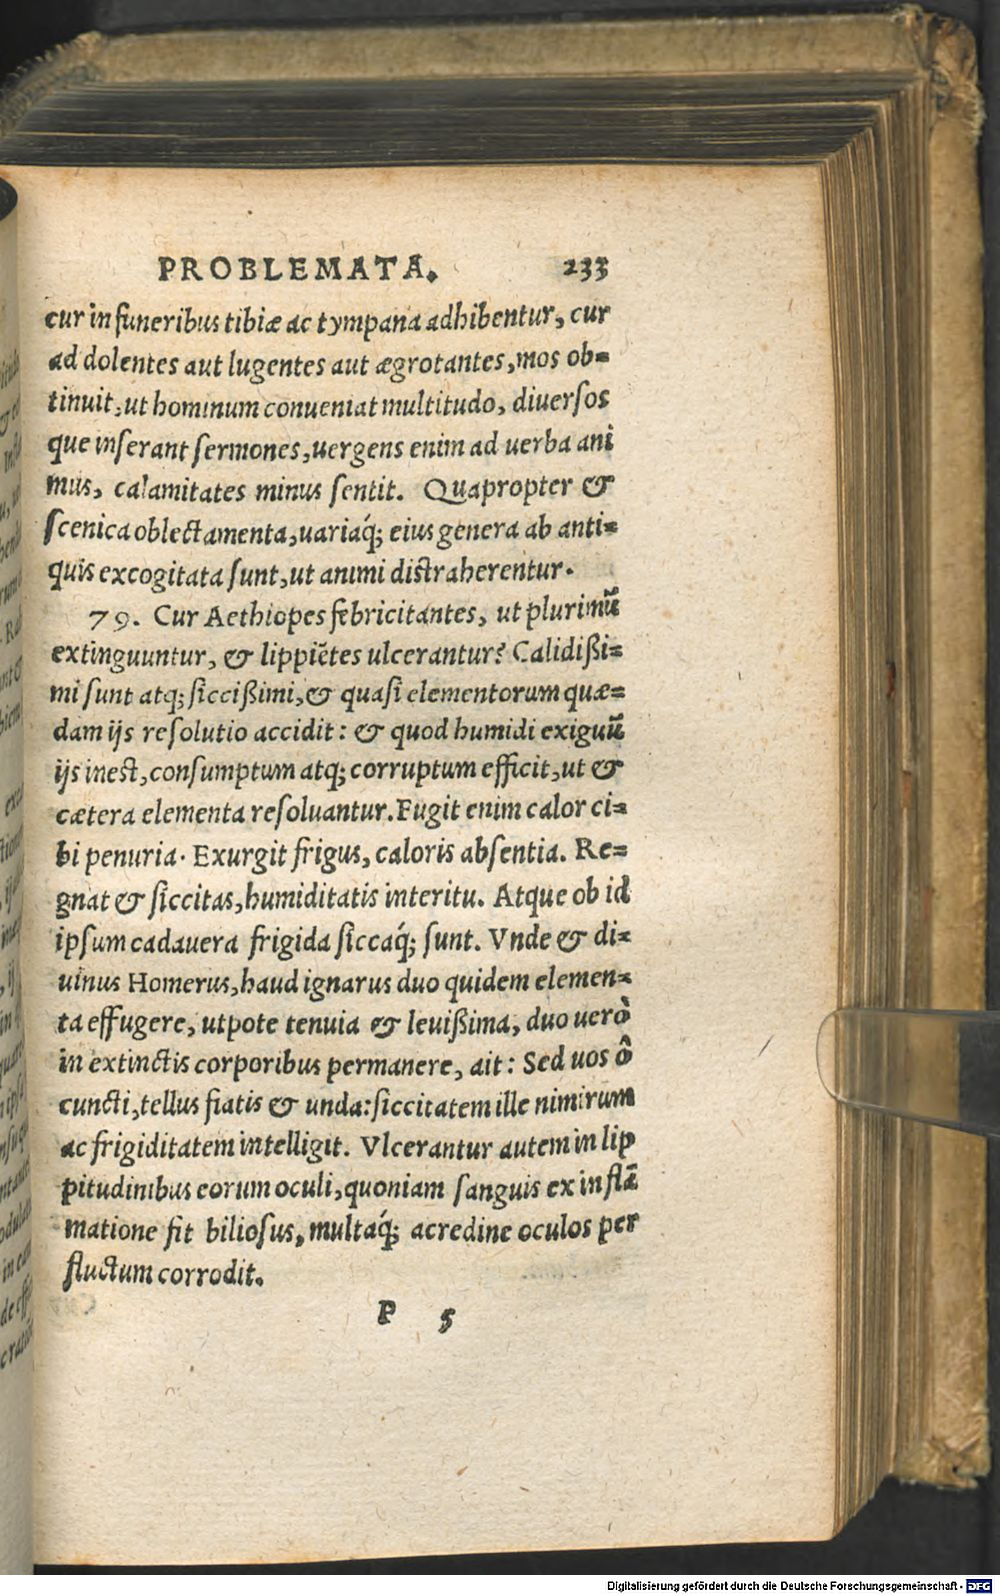 PROBLEMATA. 233
cur in funeribus tibiæ ac tympana adhibentur, cur
ad dolentes aut lugentes aut ægrotantes, mos ob=
tinuit, ut hominum conueniat multitudo, diuersos
que inserant sermones, uergens enim ad uerba ani
mus, calamitates minus sentit. Quapropter &
scenica oblectamenta, uariaq́; eius genera ab anti=
quis excogitata sunt, ut animi distraherentur.
79. Cur Aethiopes febricitantes, ut plurimū
extinguuntur, & lippiẽtes ulcerantur? Calidißi=
mi sunt atq; siccißimi, & quasi elementorum quæ=
dam ijs resolutio accidit: & quod humidi exiguū
ijs inest, consumptum atq; corruptum efficit, ut &
cætera elementa resoluantur. Fugit enim calor ci=
bi penuria. Exurgit frigus, caloris absentia. Re=
gnat & siccitas, humiditatis interitu. Atque ob id
ipsum cadauera frigida siccaq́; sunt. Vnde & di=
uinus Homerus, haud ignarus duo quidem elemen=
ta effugere, utpote tenuia & leuißima, duo uerò
in extinctis corporibus permanere, ait: Sed uos ô
cuncti, tellus fiatis & unda: siccitatem ille nimirum
ac frigiditatem intelligit. Vlcerantur autem in lip
pitudinibus eorum oculi, quoniam sanguis ex inflā
matione fit biliosus, multaq́; acredine oculos per
fluctum corrodit.
P 5
Digitalisierung gefördert durch die Deutsche Forschungsgemeinschaft - DFG